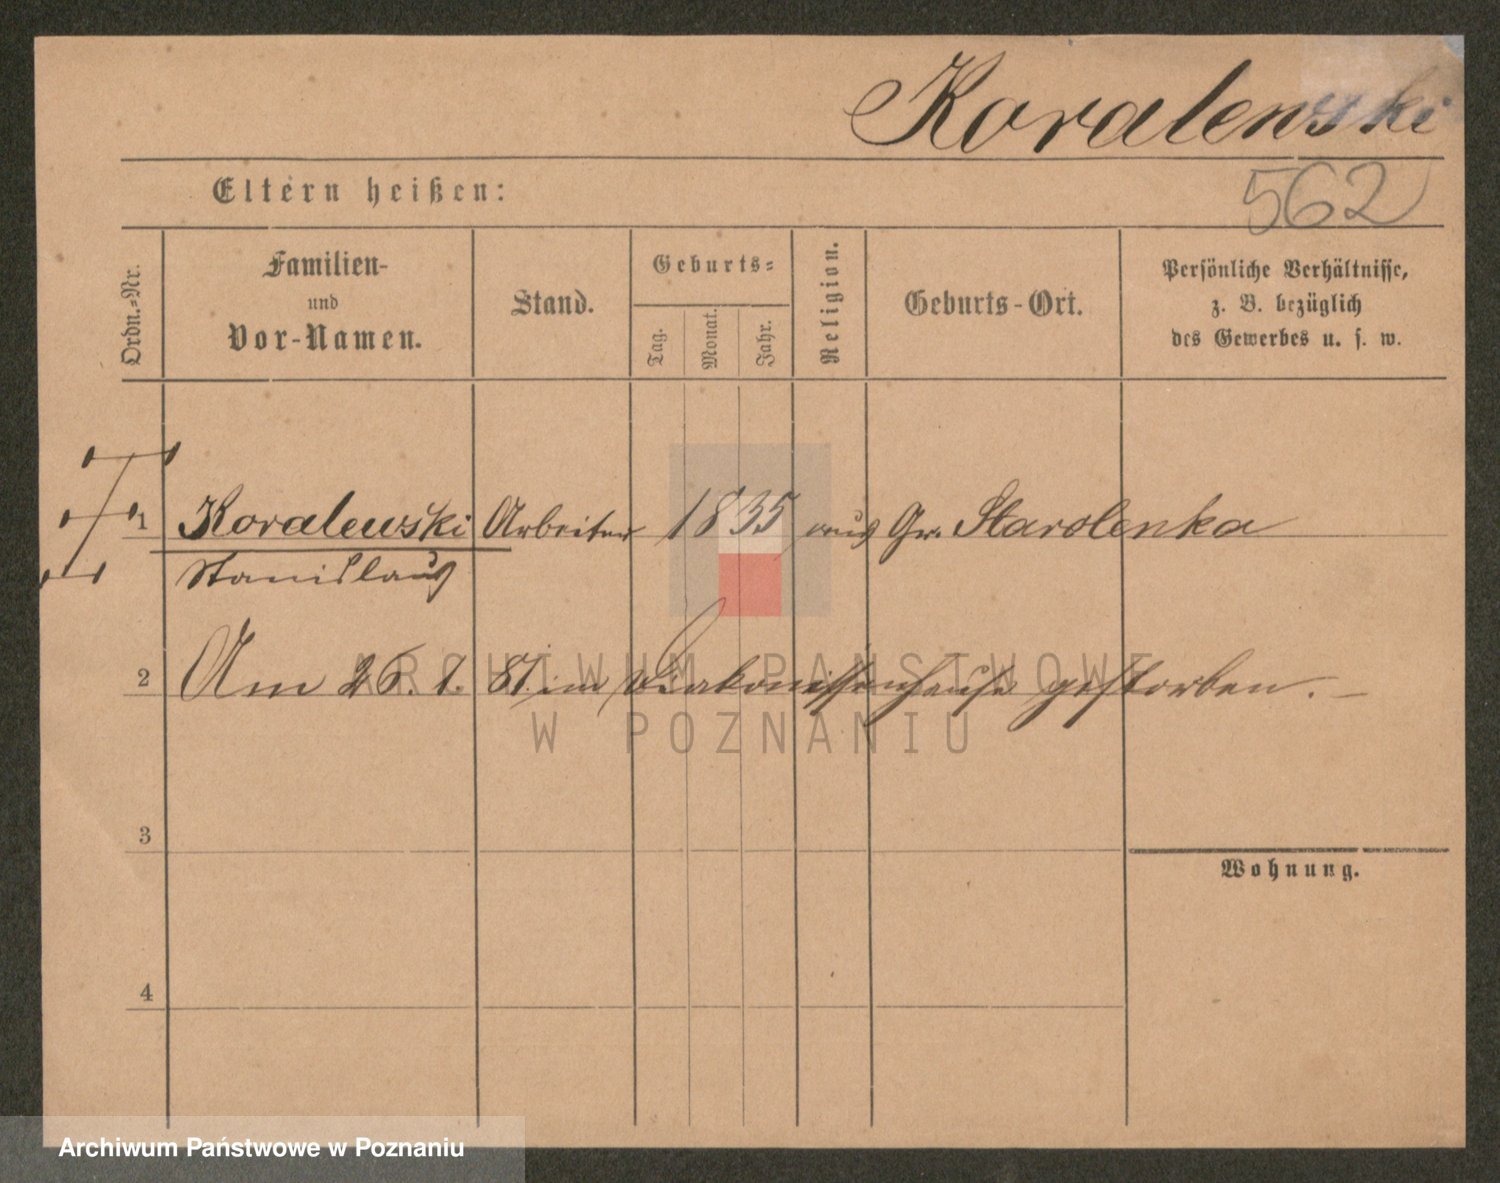 Koralewski
562
Eltern heißen:
Ordn.-Nr.
Familien-
und
Vor-Namen.
Stand.
Geburts-
Tag.
Monat.
Jahr.
Religion.
Geburts-Ort.
Persönliche Verhältnisse,
z. B. bezüglich
des Gewerbes u. s. w.
1 Koralewski Arbeiter 1835 aus Gr. Starolenka
Stanislaus
2 Am 26. 1. 81. im Diakonissenhause gestorben. —
ARCHIWUM PAŃSTWOWE
W POZNANIU
3
Wohnung.
4
Archiwum Państwowe w Poznaniu